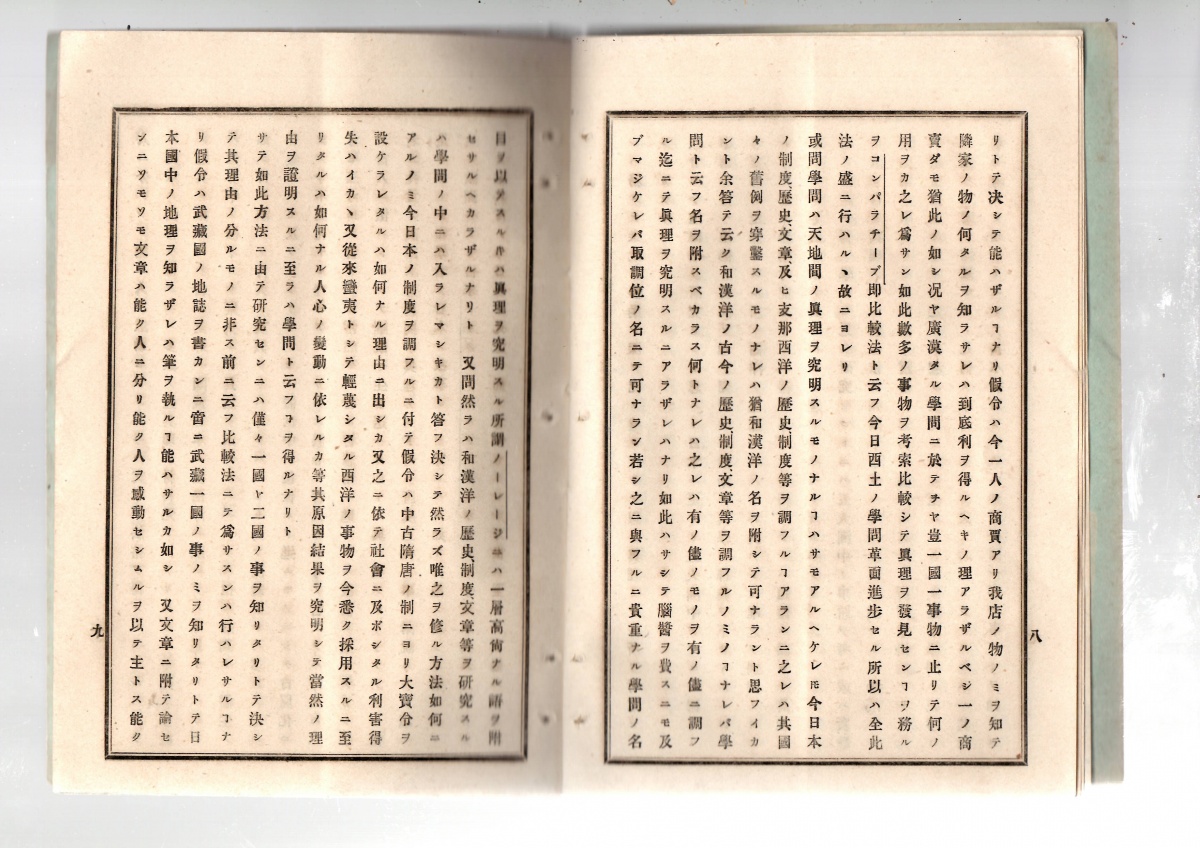 リトテ决シテ能ハザルヿナリ假令ハ今一人ノ商賈アリ我店ノ物ノミヲ知テ
隣家ノ物ノ何タルヲ知ラサレハ到底利ヲ得ルヘキノ理アラザルベジ一ノ商
賣ダモ猶此ノ如シ况ヤ廣漠タル學問ニ於テチヤ豈一國一事物ニ止リテ何ノ
用ヲカ之レ爲サン如此數多ノ事物ヲ考索比較シテ眞理ヲ發見センヿヲ務ル
ヲコンパラチーブ即比較法ト云フ今日西土ノ學問革面進歩セル所以ハ全此
法ノ盛ニ行ハルヽ故ニヨレリ
或問學問ハ天地間ノ眞理ヲ究明スルモノナルヿハサモアルヘケレ𪜈今日本
ノ制度、歴史、文章、及ヒ支那西洋ノ歴史、制度等ヲ調フルヿアランニ之レハ其國
々ノ舊例ヲ穿鑿スルモノナレハ猶和漢洋ノ名ヲ附シテ可ナラント思フイカ
ント余答テ云ク和漢洋ノ古今ノ歴史、制度、文章等ヲ調フルノミノヿナレバ學
問ト云フ名ヲ附スベカラス何トナレハ之レハ有ノ儘ノモノヲ有ノ儘ニ調フ
ル迄ニテ眞理ヲ究明スルニアラザレハナリ如此ハサシテ腦醬ヲ費スニモ及
ブマジケレバ取調位ノ名ニテ可ナラン若シ之ニ與フルニ貴重ナル學問ノ名
八
目ヲ以テスル𪜈ハ眞理ヲ究明スル所謂ノーレージニハ一層高尙ナル語ヲ附
セサルヘカラザルナリト　又問然ラハ和漢洋ノ歴史、制度、文章等ヲ研究スル
ハ學問ノ中ニハ入ラレマシキカト答フ决シテ然ラズ唯之ヲ修ル方法如何ニ
アルノミ今日本ノ制度ヲ調フルニ付テ假令ハ中古隋唐ノ制ニヨリ大寶令ヲ
設ケラレタルハ如何ナル理由ニ出シカ又之ニ依テ社會ニ及ボシタル利害得
失ハイカヽ又從來蠻夷トシテ輕蔑シタル西洋ノ事物ヲ今悉ク採用スルニ至
リタルハ如何ナル人心ノ變動ニ依レルカ等其原因結果ヲ究明シテ當然ノ理
由ヲ證明スルニ至ラハ學問ト云フヿヲ得ルナリト
サテ如此方法ニ由テ研究センニハ僅々一國ヤ二國ノ事ヲ知リタリトテ决シ
テ其理由ノ分ルモノニ非ス前ニ云フ比較法ニテ爲サスンハ行ハレサルヿナ
リ假令ハ武藏國ノ地誌ヲ書カンニ啻ニ武藏一國ノ事ノミヲ知リタリトテ日
本國中ノ地理ヲ知ラザレハ筆ヲ執ルヿ能ハサルカ如シ　又文章ニ附テ論セ
ンニソモソモ文章ハ能ク人ニ分リ能ク人ヲ感動セシムルヲ以テ主トス能ク
九